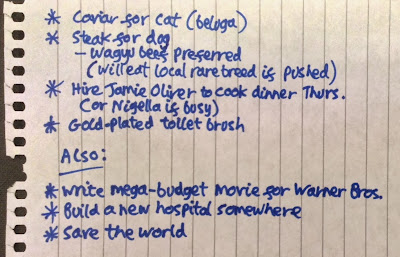 * Caviar for cat (beluga)
* Steak for dog
- wagyu beef preferred
(will eat local rare breed if pushed)
* Hire Jamie Oliver to cook dinner Thurs.
(or Nigella if busy)
* Gold-plated toilet brush
Also:
* Write mega-budget movie for Warner Bros.
* Build a new hospital somewhere
* Save the world